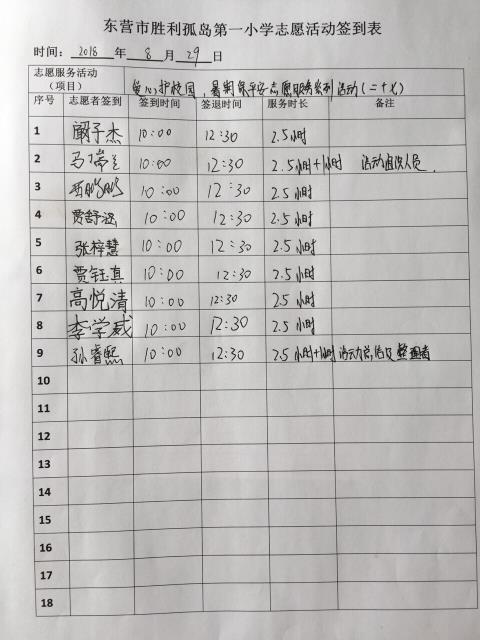 东营市胜利孤岛第一小学志愿活动签到表
时间：2018 年 8 月 29 日
志愿服务活动（项目） 爱心护校园，暑期保平安志愿服务系列活动（二十七）
序号 志愿者签到 签到时间 签退时间 服务时长 备注
1 阚子杰 10:00 12:30 2.5小时
2 10:00 12:30 2.5小时+1小时 活动组织人员.
3 10:00 12:30 2.5小时
4 贾舒涵 10:00 12:30 2.5小时
5 张梓慧 10:00 12:30 2.5小时
6 贾钰真 10:00 12:30 2.5小时
7 高悦清 10:00 12:30 2.5小时
8 李学威 10:00 12:30 2.5小时
9 孙睿熙 10:00 12:30 2.5小时+1小时 活动总结及整理者
10
11
12
13
14
15
16
17
18